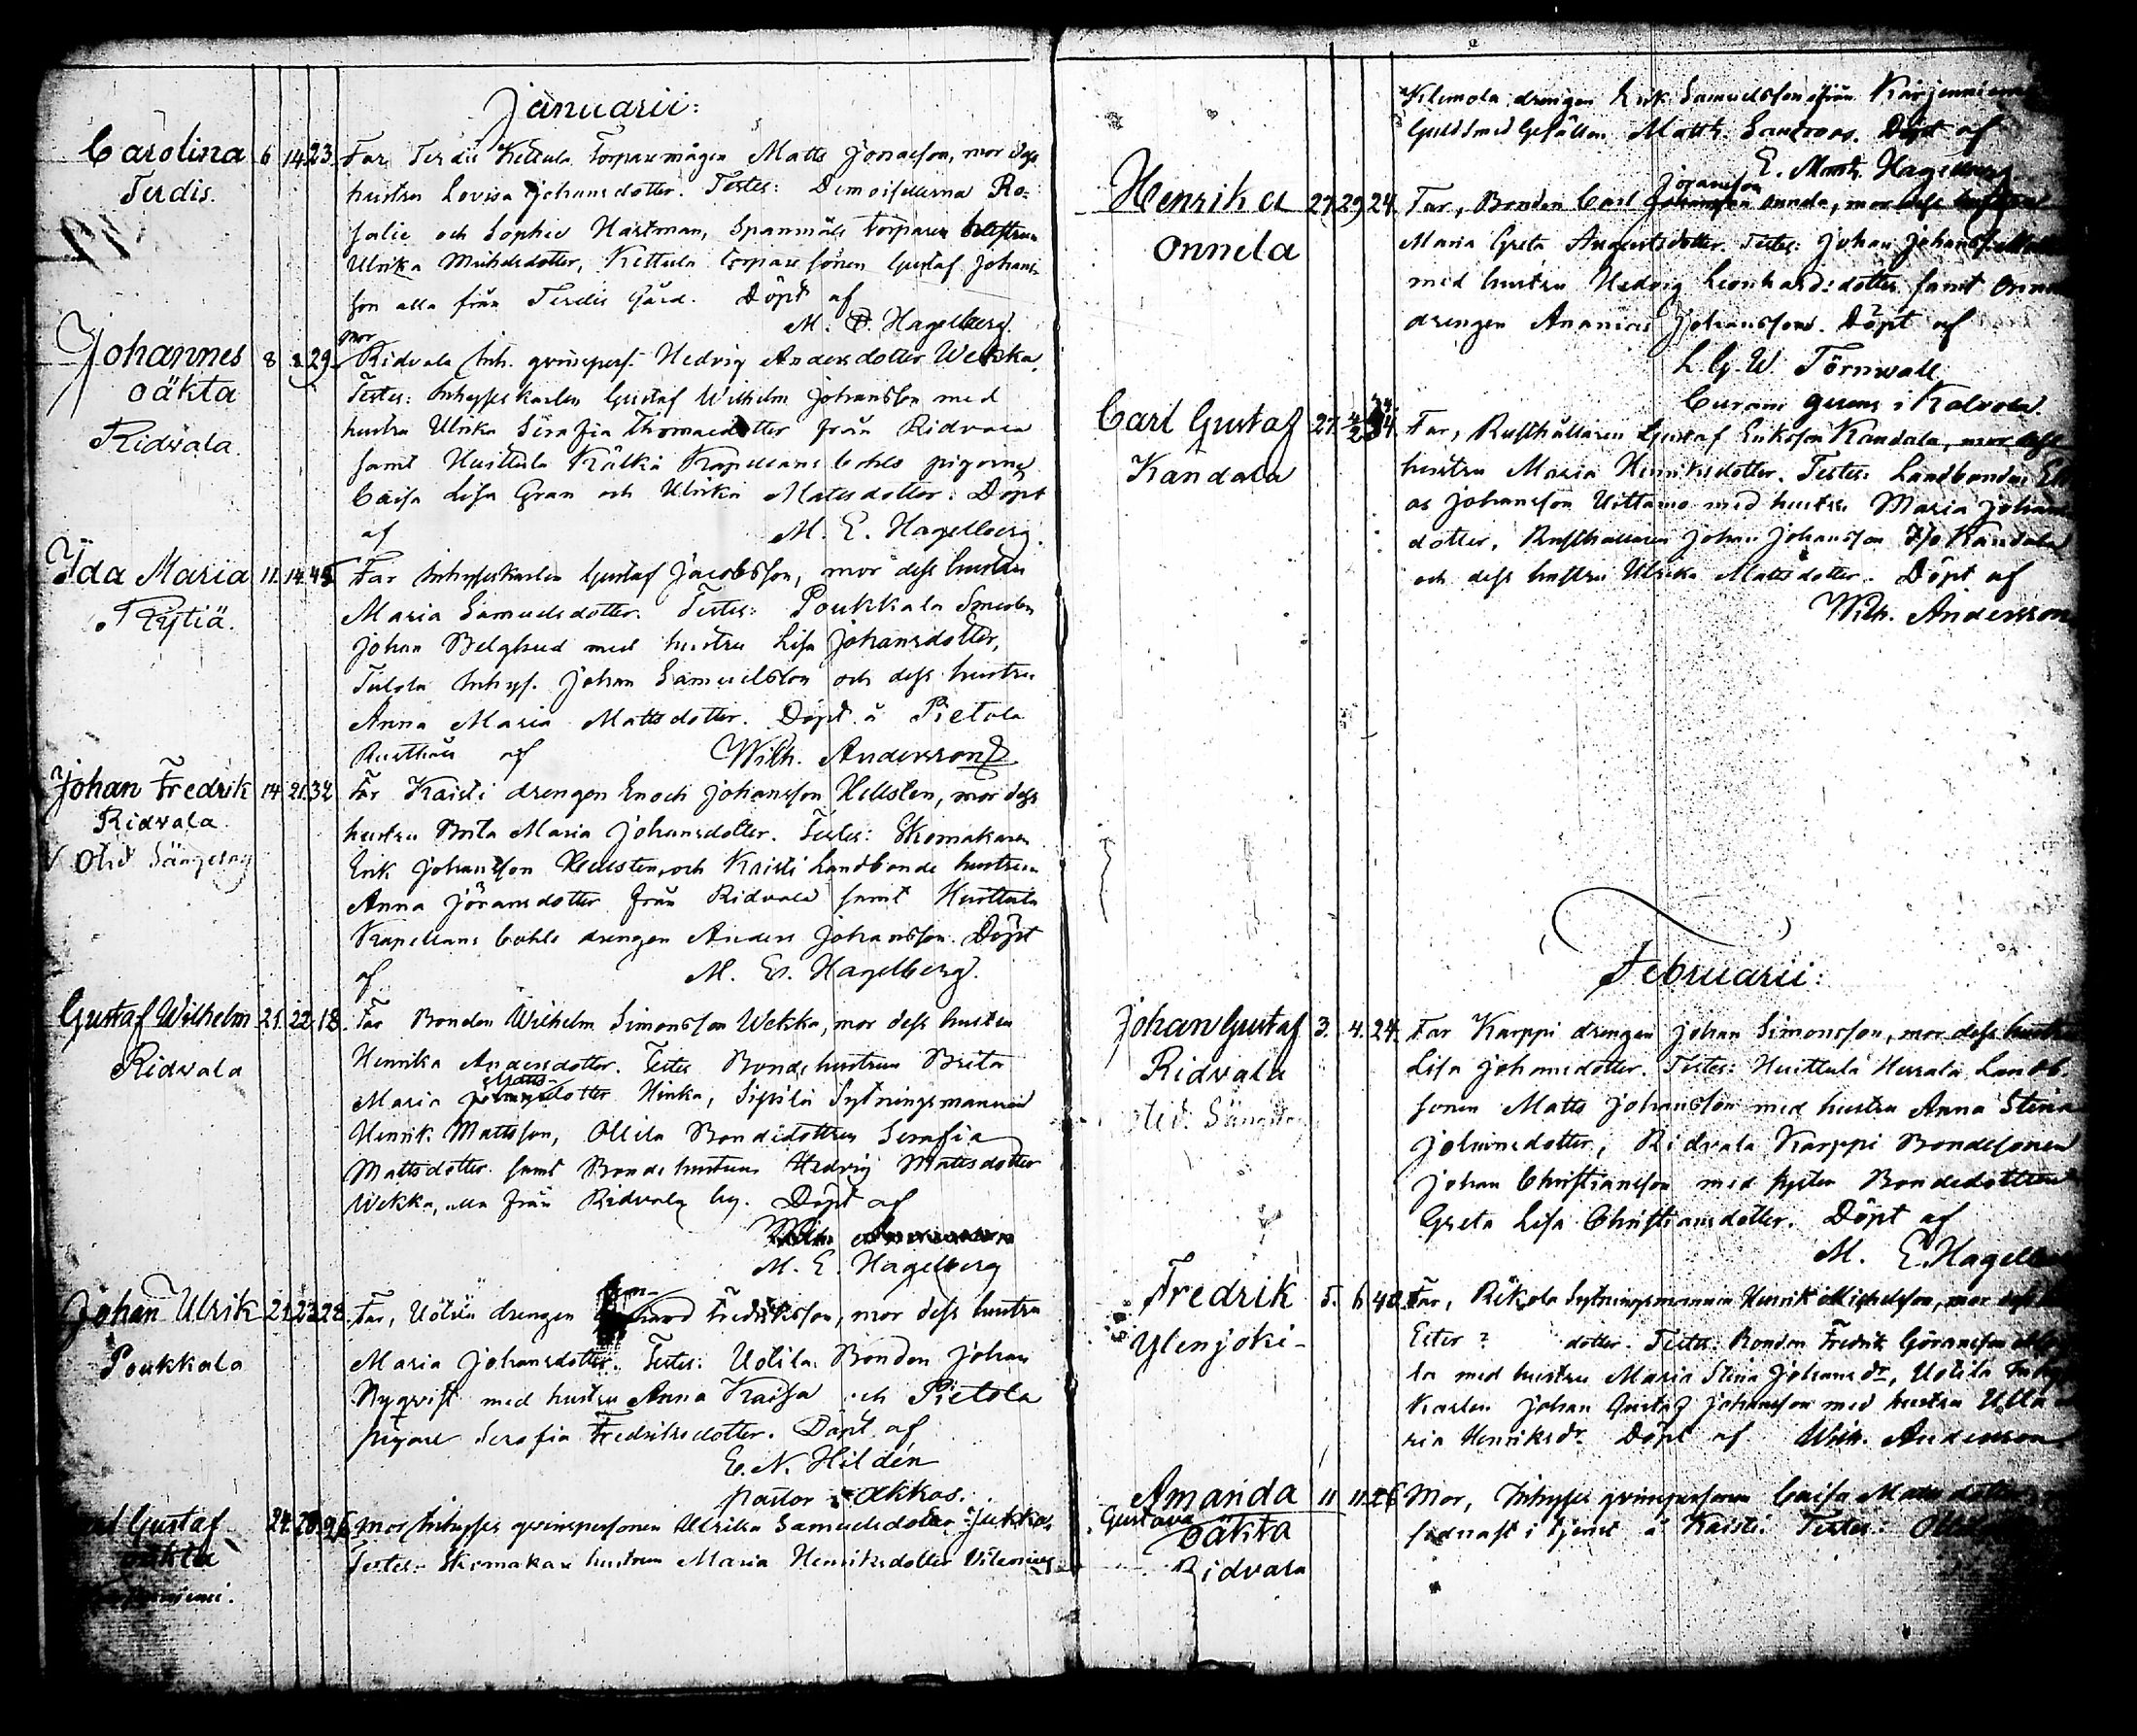 Januarii:
Carolina 6 14. 23. Far Terdis Kettula Torparemågen Matts Jonasson, mor dess
Terdis. hustru Lovisa Johansdotter. Testes: Demoisellerna Ro-
salie och Sophie Hartman, Spannmäls Torpare
Ulrika Michelsdotter, Kettula Torpare sonen Gustaf Johans-
son alla från Terdis Gård. Döpt af
M. E. Hagelberg.
Johannes 8 29. mor Ridvala Inh. qvinspers. Hedvig Andersdotter Wekka.
oäkta Testes: Inhyseskarlen Gustaf Wilhelm Johansson med
Ridvala. hustru Ulrika Serafia Thomasdotter från Ridvala
samt Huittula Kälkä Kapellans bohls pigorna
Caisa Lisa Gran och Ulrika Matsdotter. Döpt
af M. E. Hagelberg.
Ida Maria 11. 14. Far Inhyseskarlen Gustaf Jacobsson, mor dess hustru
Rytiä. Maria Samuelsdotter. Testes: Poukkala Smeden
Johan Belglund med hustru Lisa Johansdotter,
Tulola Inhys. Johan Samuelsson och dess hustru
Anna Maria Mattsdotter. Döpt å Pietola
Rusthåll af Wilh. Andersson
Johan Fredrik 14 21. 32 Far Kaisti drengen Enoch Johansson Hellsten, mor dess
Ridvala. hustru Brita Maria Johansdotter. Testes: Skomakaren
Erik Johansson Hellsten, och Kaisti Landbonde hustrun
Anna Jöransdotter från Ridvala samt Huittula
Kapellans bohls drengen Anders Johansson. Döpt
af M. E. Hagelberg.
Gustaf Wilhelm 21. 22. 18. Far Bonden Wilhelm Simonsson Wekka, mor dess hustru
Ridvala Henrika Andersdotter. Testes Bonde hustrun Brita
Maria Mattsdotter Hinka, Sipilä Sytningsmannen
Henrik Mattsson, Ollila Bondedottren Serafia
Mattsdotter samt Bonde hustrun Hedvig Mattsdotter
Wekka, alla från Ridvala by. Döpt af
M. E. Hagelberg
Johan Ulrik 21. 23. 28. Far, Uotila drengen Fredriksson, mor dess hustru
Poukkala Maria Johansdotter. Testes: Uotila Bonden Johan
Nyqvist med hustru Anna Kaisa och Pietola
pigan Serafia Fredriksdotter. Döpt af
E. N. Hildén
pastor i Akkas.
Gustaf 24. 28. mor Inhyses qvinspersonen Ulrika Samuelsdotter
oäkta Testes: Skomakare hustrun Maria Henriksdotter
Klemola drengen Erik Samuelsson från Karjenniemi
Guldsmed Gesällen Matth. Döpt af
E. Hagelberg
Henrika 27. 29. 24. Far, Bonden Carl Joransson Onnela, mor dess hustru
Onnela Maria Greta Augustsdotter. Testes: Johan Johansson
med hustru Hedvig Leonhardsdotter samt
drengen Ananias Johansson. Döpt af
L. G. W. Törnwall
Curam gerens i Kalvola.
Carl Gustaf 27. Far, Rusthållaren Gustaf Eriksson Kandala, mor dess
Kandala hustru Maria Henriksdotter. Testes: Landbonden
Johansson Uittamo med hustru Maria Johans
dotter, Rusthållaren Johan Johansson Kandala
och dess hustru Ulrika Mattsdotter. Döpt af
Wilh. Andersson
Februarii:
Johan Gustaf 3. 4. 24. Far Karppi drengen Johan Simonsson, mor dess hustru
Ridvala Lisa Johansdotter. Testes: Huittula Hurala Landb.
sonen Matts Johansson med hustru Anna Stina
Johansdotter, Ridvala Karppi Bondesonen
Johan Christiansson med syster Bondedottren
Greta Lisa Christiansdotter. Döpt af
M. E. Hagelberg
Fredrik 5. 6. 40. Far, Rikala Sytningsmannen Henrik Michelsson, mor dess
Ylenjoki Ester ? dotter. Testes: Bonden Fredrik Göransson
la med hustru Maria Stina Johansdr, Uotila
karlen Johan Gustaf Johansson med hustru Ulla
ria Henriksdr. Döpt af Wilh. Andersson
Amanda 11 11. 26 Mor, Inhyses qvinspersonen Caisa
Gustava
oäkta i tjenst å Kaisti. Testes:
Ridvala